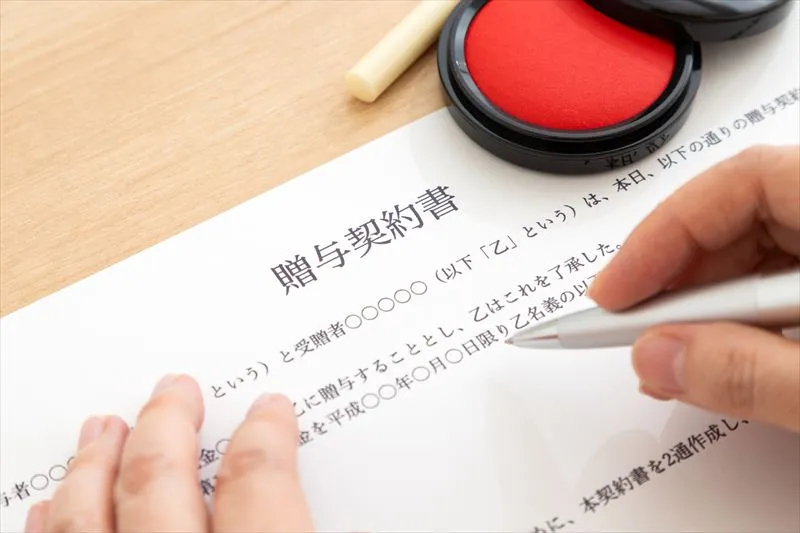 贈与契約書
与者○○ という）と受贈者○○○○○（以下「乙」という）は、本日、以下の通りの贈与契約
金○ 乙に贈与することとし、乙はこれを了承した。
第 金を平成○○年○月○日限り乙名義の以下
めに、本契約書を2通作成し、